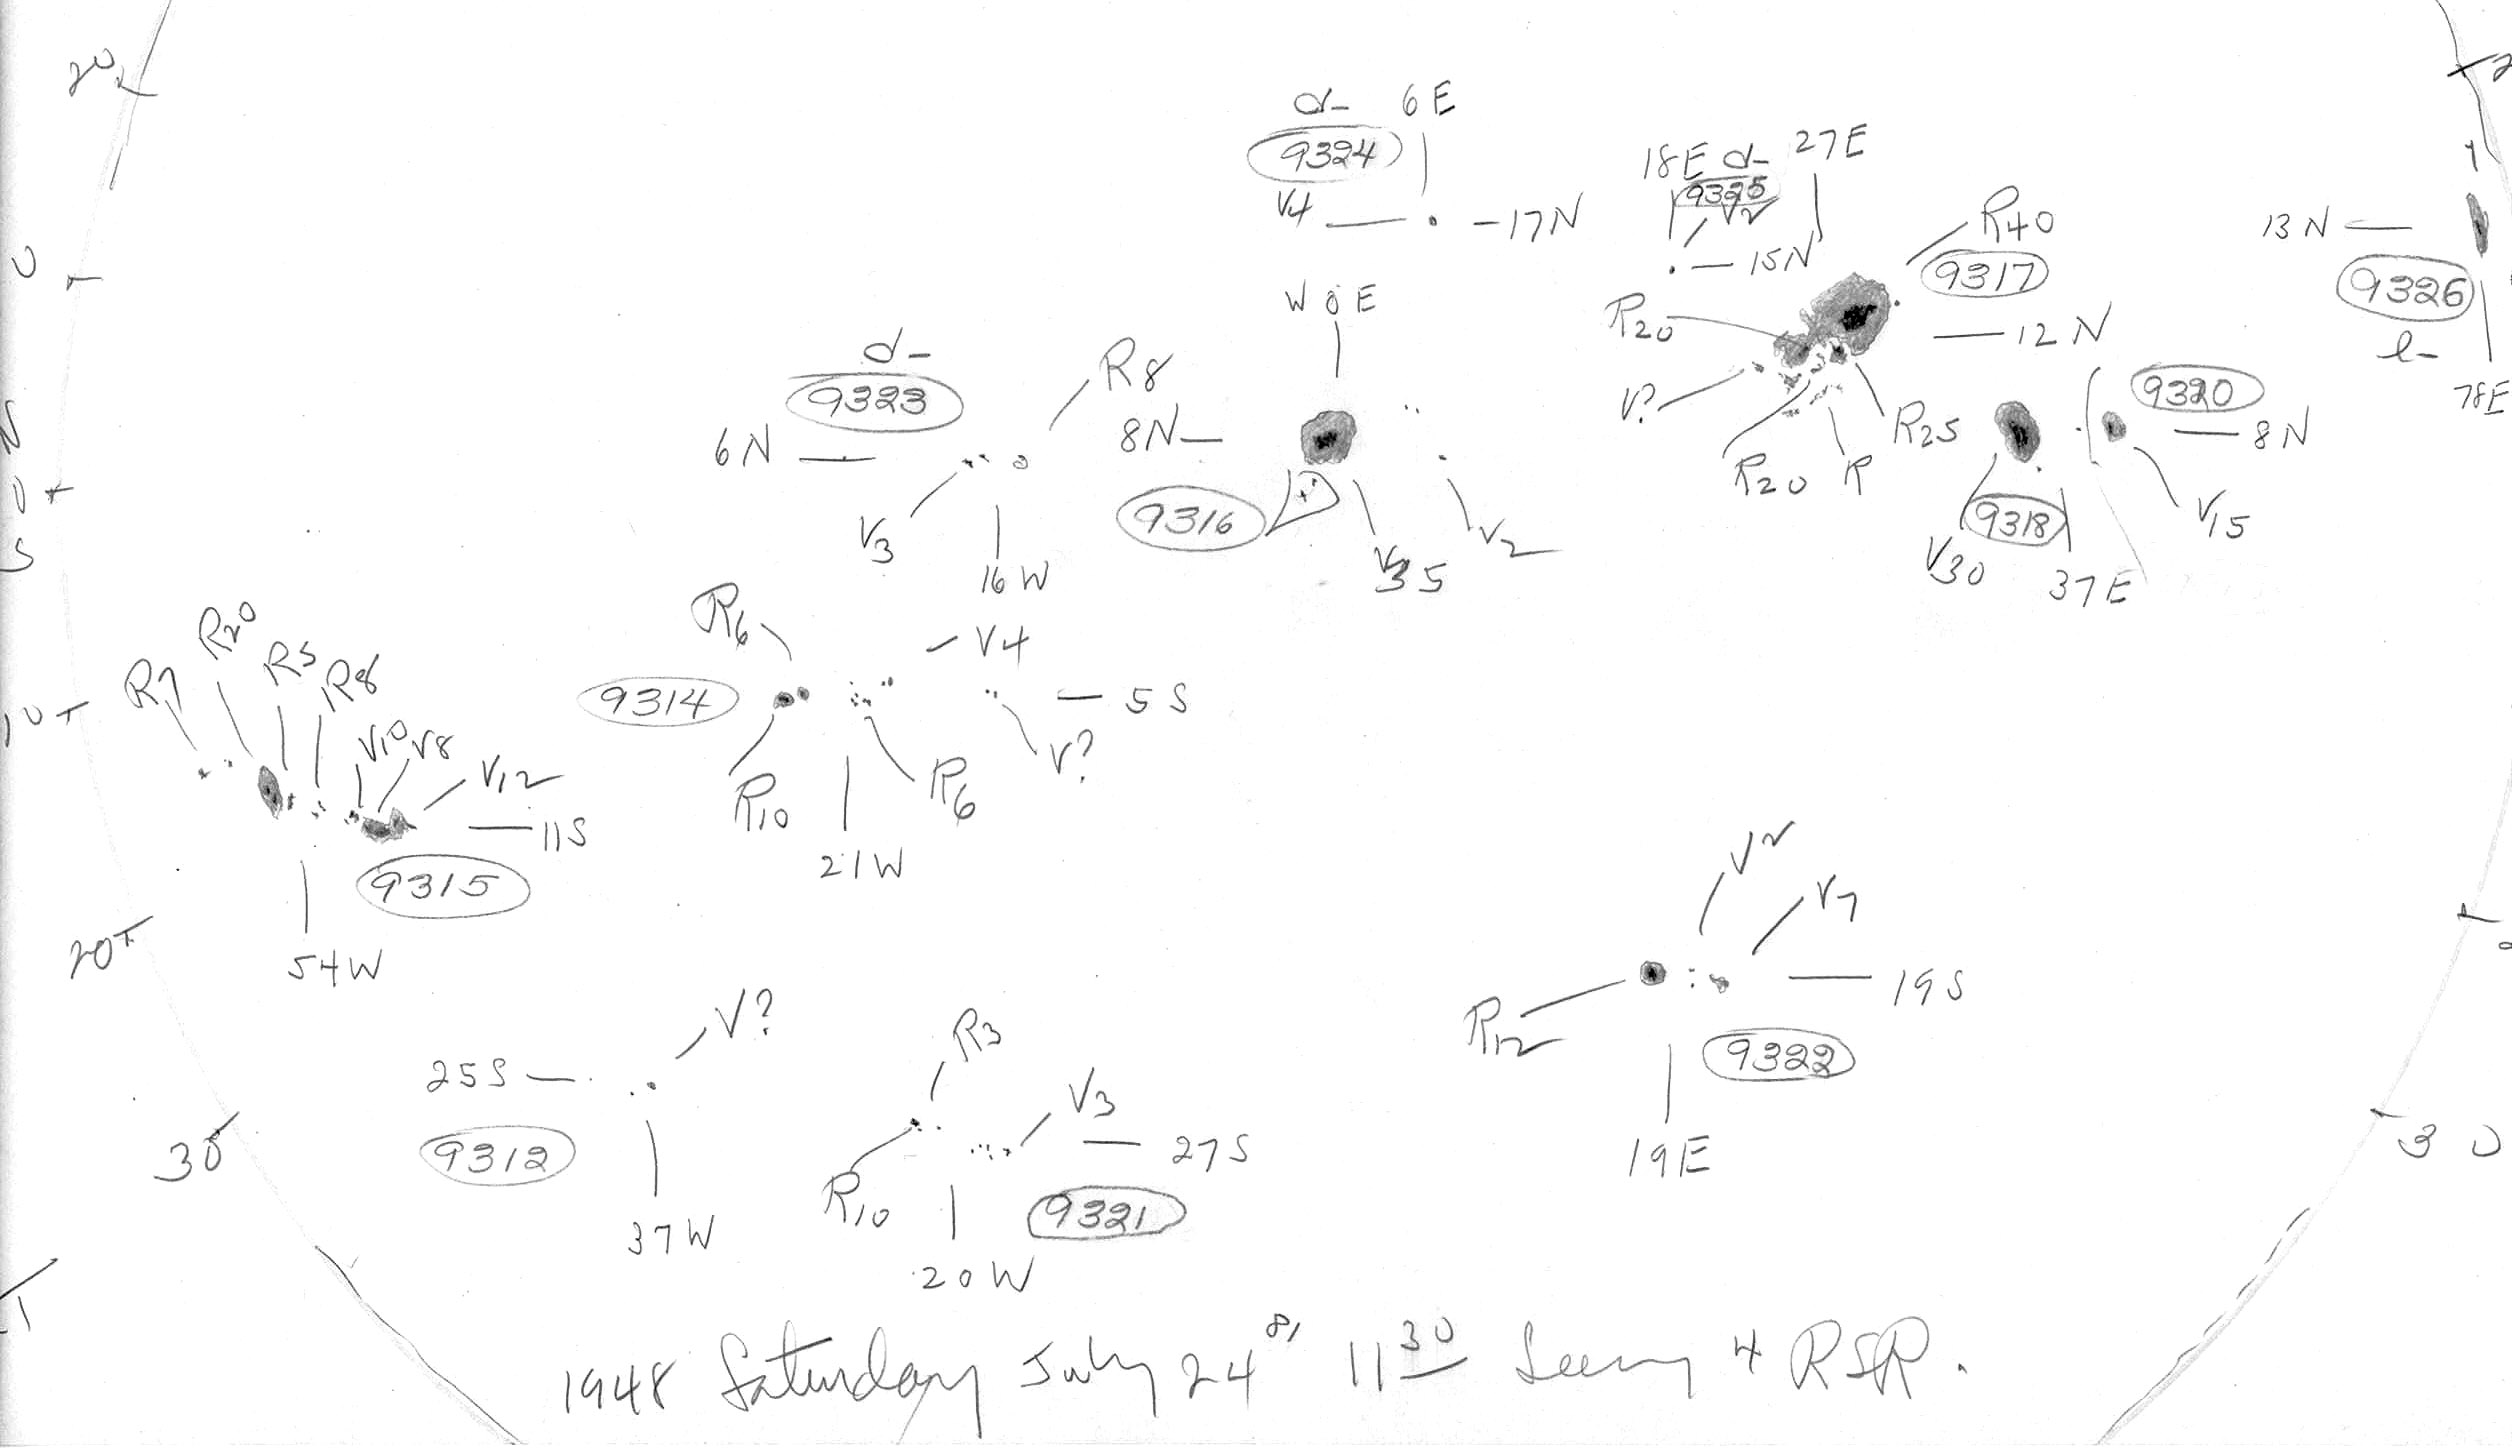 20
20
d- 6E
9324
V4 17N
18E d- 27E
9325
V2
15N
R40
9317
13N
9326
l-
78E
0
W 0 E
R20
12N
d-
9323
R8
6N
V3
16W
8N
9316
V35
V2
V?
R20 R
R25
9320
8N
V15
9318
V30
37E
N
0
S
R7 R20 R5 R8
V10 V8 V12
11S
9315
54W
R6
V4
9314
5S
R10
R6
V?
21W
10
20
V2
V7
R12
19S
9322
19E
V?
25S
9312
37W
R3
V3
27S
R10
9321
20W
30
30
1948 Saturday July 24 11 30 Seeing 4 RSR.